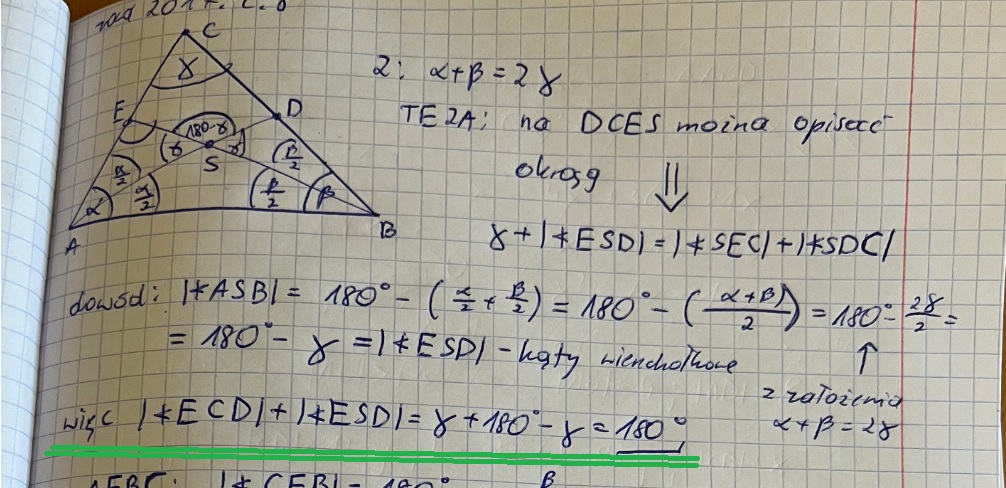 zad 2017.
C
γ
E
D
180-γ
γ
γ
S
α/2
β/2
α
α/2
β/2
β
A
B
Z: α+β=2γ
TEZA: na DCES można opisać
okrąg
⇓
γ+|∢ESD|=|∢SEC|+|∢SDC|
dowód: |∢ASB|= 180°-(α/2+β/2)=180°-((α+β)/2)=180°-2γ/2=
= 180°-γ=|∢ESD|-kąty wierzchołkowe
↑
z założenia
α+β=2γ
więc |∢ECD|+|∢ESD|=γ+180°-γ=180°,
ΔEBC: |∢CEB|=180° β